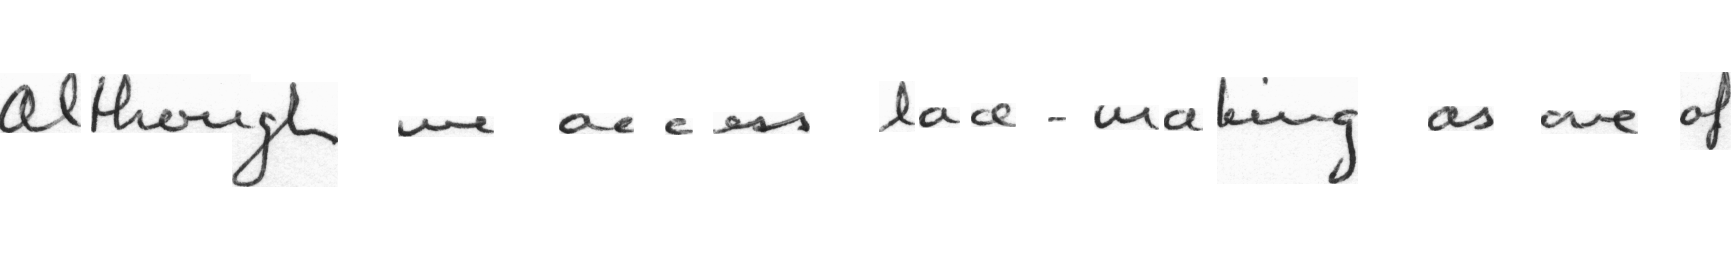 Although we access lace-making as one of